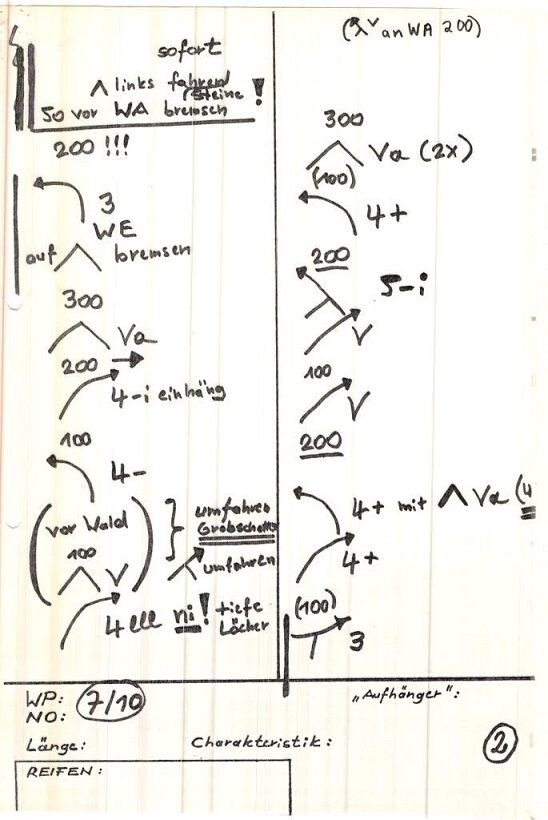 sofort
links fahren
(Steine !
50 vor WA bremsen
200 !!!
3
WE
auf bremsen
300
Va
200
4-i einhäng
100
4-
(vor Wald
100
V)
} umfahren
Grobschotter
umfahren
4 lll ni! tiefe
Löcher
(λ v an WA 200)
300
Va (2x)
(100)
4+
200
5-i
V
100
V
200
4+ mit Λ Va (4
4+
(100)
3
WP: 7/10
NO:
Länge:
Charakteristik:
„Aufhänger":
2
REIFEN: